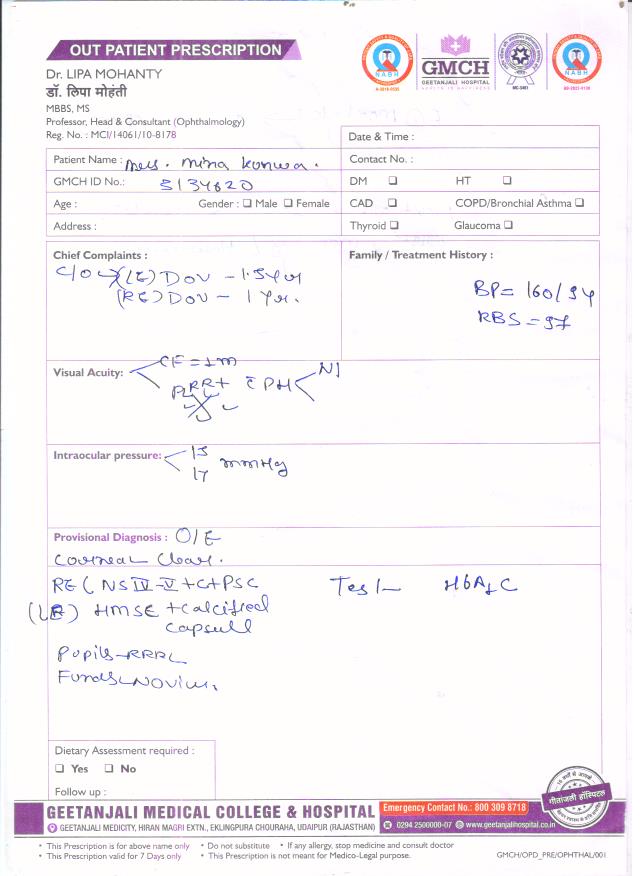 OUT PATIENT PRESCRIPTION
NABH
A-2018-0535
GMCH
GEETANJALI HOSPITAL
MC-3461
NABH
Dr. LIPA MOHANTY
डॉ. लिपा मोहंती
MBBS, MS
Professor, Head & Consultant (Ophthalmology)
Reg. No. : MCI/14061/10-8178
Date & Time :
Patient Name : Mrs. Mina Kunwar.
Contact No. :
GMCH ID No.: 5134620
DM ☐ HT ☐
Age : Gender : ☐ Male ☐ Female
CAD ☐ COPD/Bronchial Asthma ☐
Address :
Thyroid ☐ Glaucoma ☐
Chief Complaints :
Family / Treatment History :
C/O (LE) DOV - 1.5 Yer
(RE) DOV - 1 Yer.
BP= 160/94
RBS = 97
Visual Acuity: CF = 1m
PL PR+ C PH NI
Intraocular pressure: 15
17 mmHg
Provisional Diagnosis : O/E
Corneal Clear.
RE ( NS IV-V + C + PSC
Test - HbA1C
(LE) HMSC + Calcified
Capsull
Pupils - RRRL
Fundus - NO View.
Dietary Assessment required :
☐ Yes ☐ No
Follow up :
GEETANJALI MEDICAL COLLEGE & HOSPITAL
Emergency Contact No.: 800 309 8718
GEETANJALI MEDICITY, HIRAN MAGRI EXTN., EKLINGPURA CHOURAHA, UDAIPUR (RAJASTHAN)
0294 2500000-07 www.geetanjalihospital.co.in
गीतांजली हॉस्पिटल
• This Prescription is for above name only • Do not substitute • If any allergy, stop medicine and consult doctor
• This Prescription valid for 7 Days only • This Prescription is not meant for Medico-Legal purpose.
GMCH/OPD_PRE/OPHTHAL/001